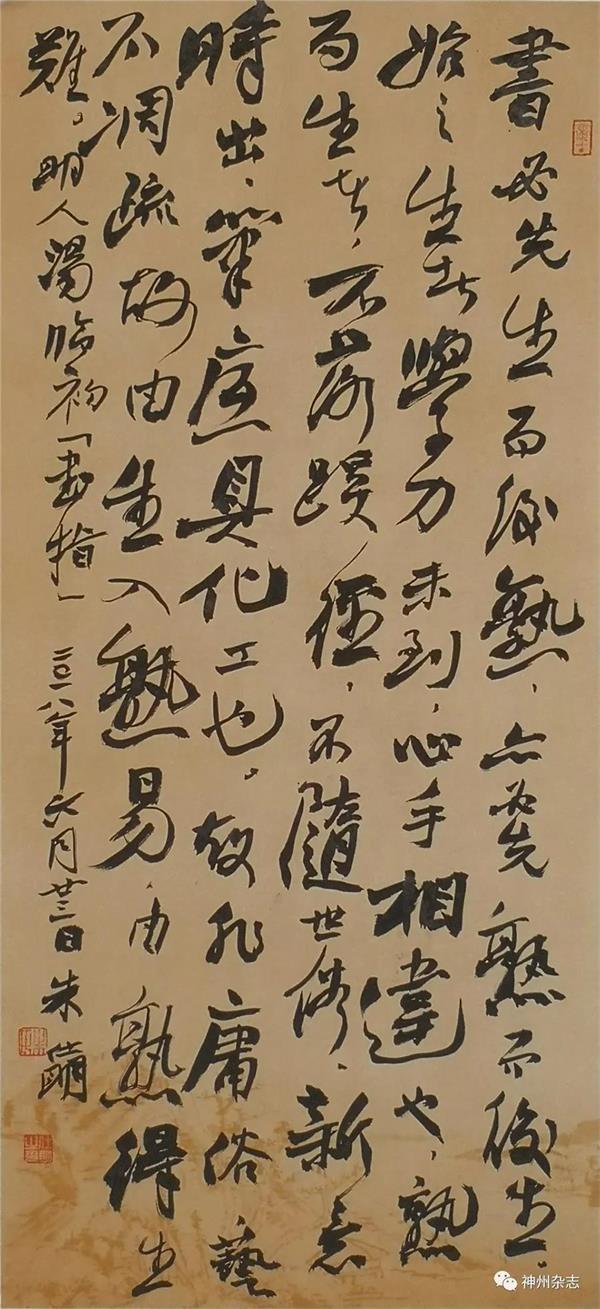 書必先生而後熟、亦必先熟而後生。
始之生者學力未到、心手相違也、熟
而生者、不落蹊徑、不隨世俗、新意
時出、筆底具化工也。故非庸俗藝
不凋疏故由生入熟易、由熟得生
難。明人湯臨初「書指」二〇一八年六月廿三日朱
神州杂志